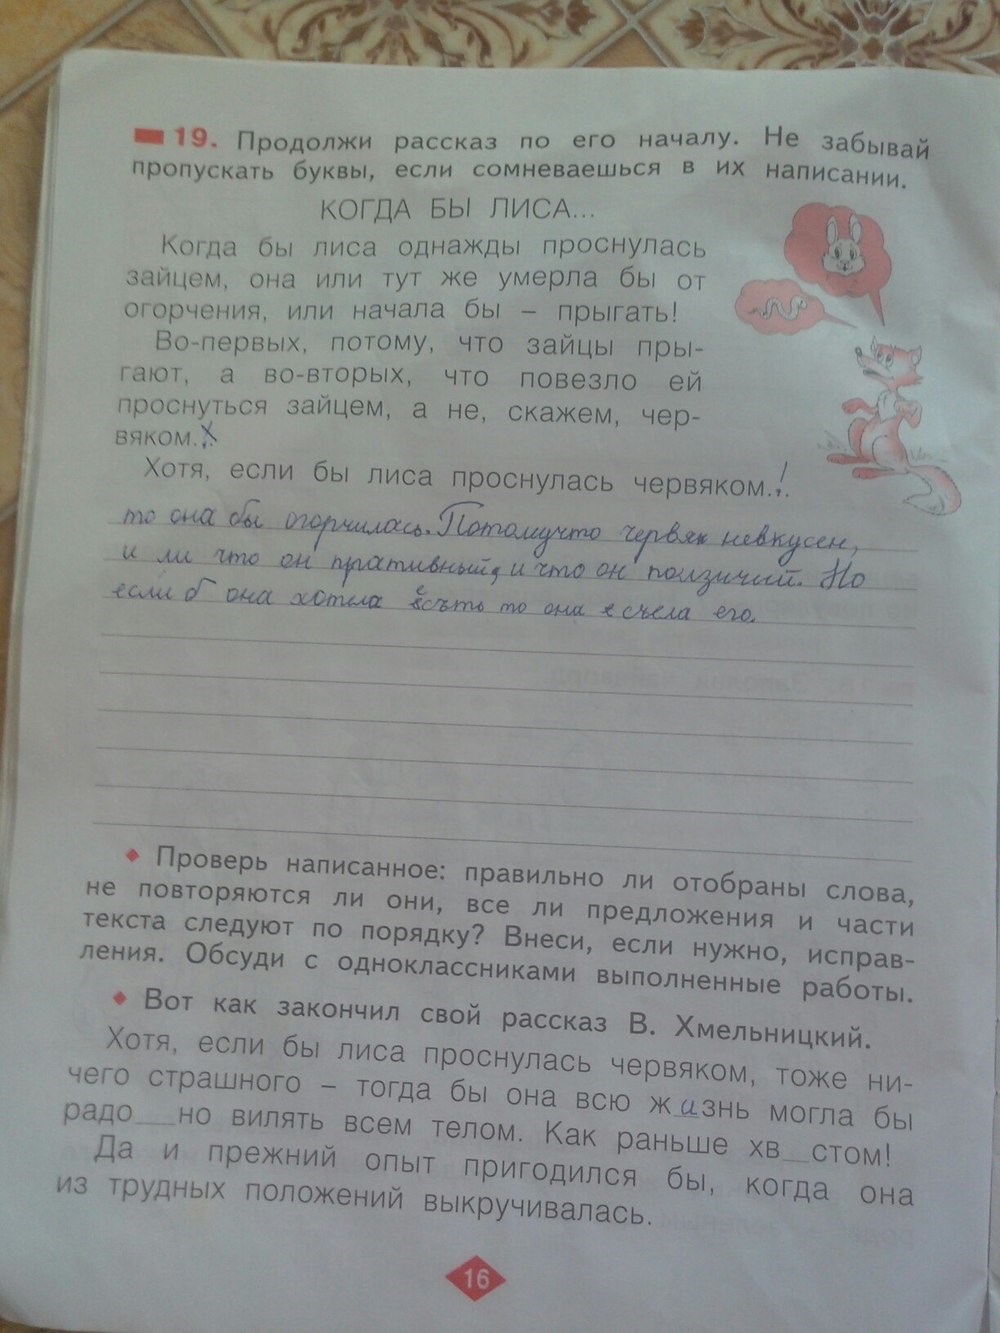 19. Продолжи рассказ по его началу. Не забывай
пропускать буквы, если сомневаешься в их написании.
КОГДА БЫ ЛИСА...
Когда бы лиса однажды проснулась
зайцем, она или тут же умерла бы от
огорчения, или начала бы – прыгать!
Во-первых, потому, что зайцы пры-
гают, а во-вторых, что повезло ей
проснуться зайцем, а не, скажем, чер-
вяком...
Хотя, если бы лиса проснулась червяком...
то она бы огорчилась. Потомучто червяк невкусен,
и ли что он пративный, и что он ползучий. Но
если б она хотела есть то она съела его.
Проверь написанное: правильно ли отобраны слова,
не повторяются ли они, все ли предложения и части
текста следуют по порядку? Внеси, если нужно, исправ-
ления. Обсуди с одноклассниками выполненные работы.
Вот как закончил свой рассказ В. Хмельницкий.
Хотя, если бы лиса проснулась червяком, тоже ни-
чего страшного – тогда бы она всю жизнь могла бы
радо__но вилять всем телом. Как раньше хв__стом!
Да и прежний опыт пригодился бы, когда она
из трудных положений выкручивалась.
16